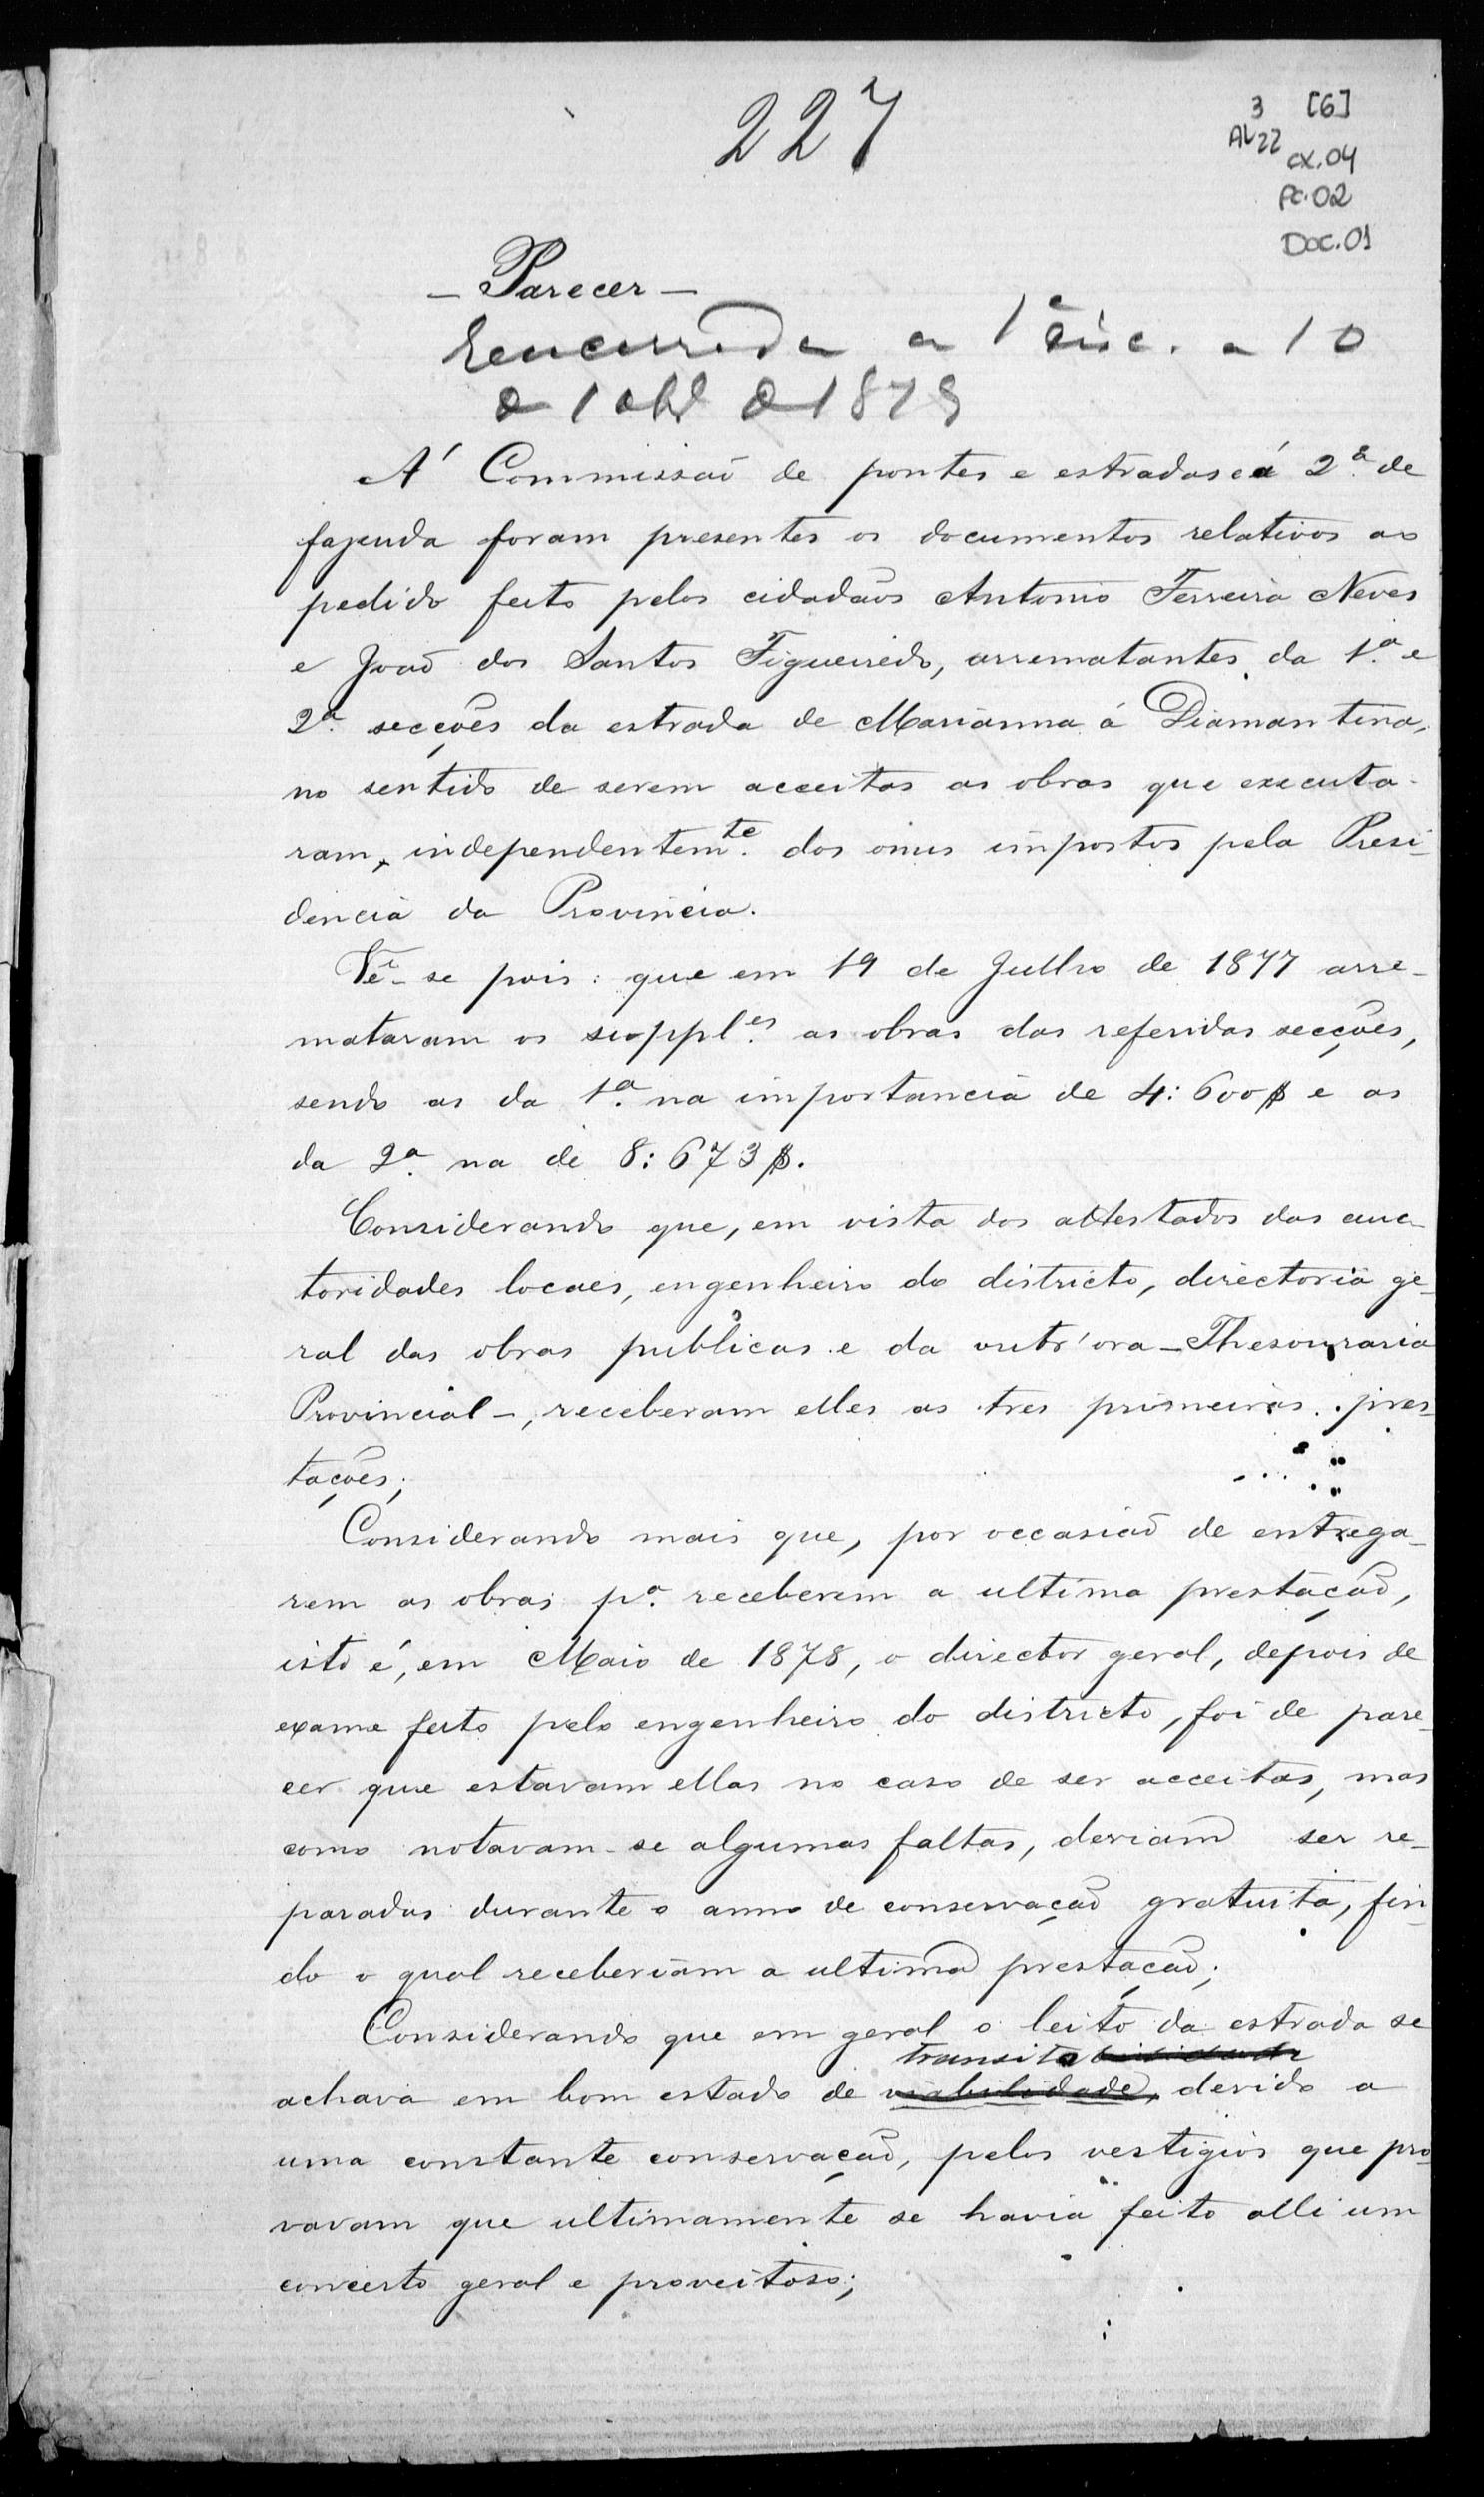 227
3 [6]
AL22
cx. 04
PC. 02
Doc. 01
- Parecer -
Encerrada a 1ª disc. a 10
de 1879
A' Commissaõ de pontes e estradas e á 2ª de
fazenda foram presentes os documentos relativos ao
pedido feito pelos cidadãos Antonio Ferreira Neves
e Joaõ dos Santos Figueiredo, arrematantes da 1.ª e
2.ª secções da estrada de Marianna á Diamantina,
no sentido de serem acceitas as obras que executa-
ram, independentem.te dos onus impostos pela Presi-
dencia da Provincia.
Vê-se pois: que em 19 de Julho de 1877 arre-
mataram os suppl.es as obras das referidas secções,
sendo as da 1.ª na importancia de 4:600$ e as
da 2.ª na de 8:673$.
Considerando que, em vista dos attestados das auc-
toridades locaes, engenheiro do districto, directoria ge-
ral das obras publicas e da outr'ora - Thesouraria
Provincial -, receberam elles as tres primeiras pres-
tações;
Considerando mais que, por occasiaõ de entrega-
rem as obras p.ª receberem a ultima prestaçaõ,
isto é, em Maio de 1878, o director geral, depois de
exame feito pelo engenheiro do districto, foi de pare-
cer que estavam ellas no caso de ser acceitas, mas
como notavam-se algumas faltas, deviam ser re-
paradas durante o anno de conservaçaõ gratuita, fin-
do o qual receberiam a ultima prestaçaõ;
Considerando que em geral o leito da estrada se
transitabilidade
achava em bom estado de viabilidade, devido a
uma constante conservaçaõ, pelos vestigios que pro-
vavam que ultimamente se havia feito alli um
concerto geral e proveitoso;